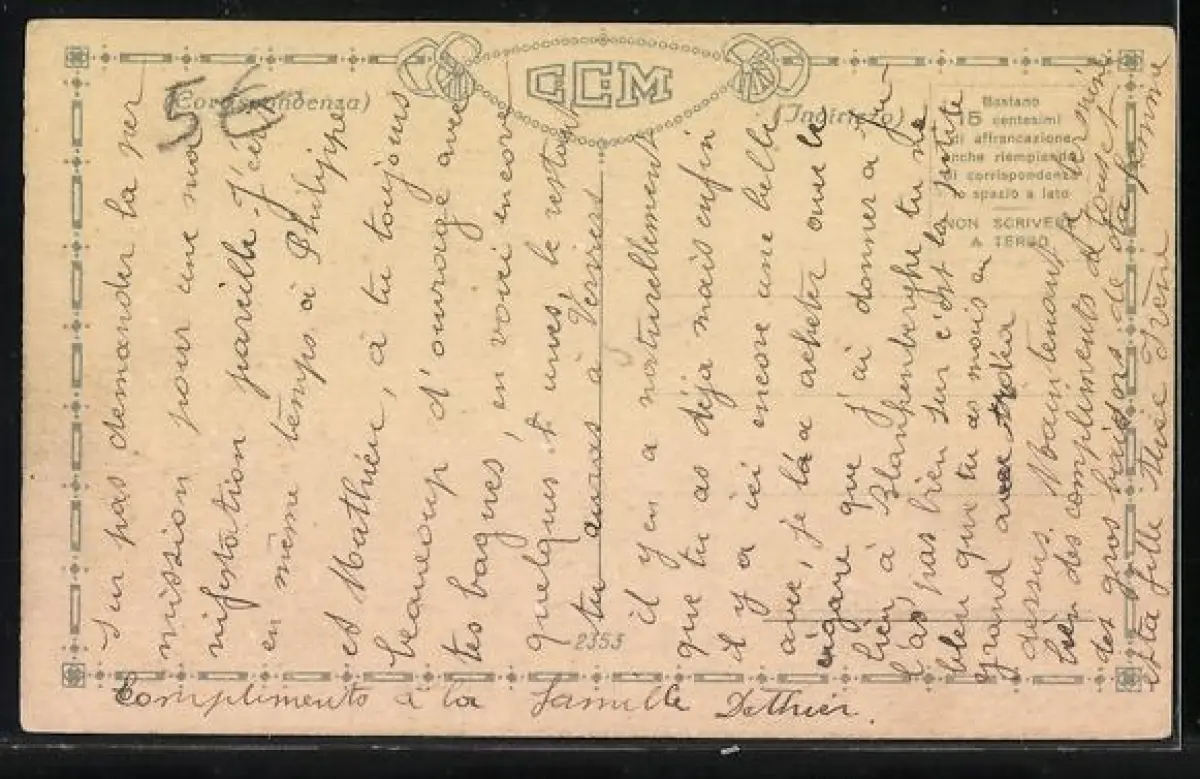 CCM
(Corrispondenza)
(Indirizzo)
Bastano
15 centesimi
di affrancazione
anche riempiendo
di corrispondenza
lo spazio a lato
NON SCRIVERE
A TERGO
56
s'en pas demander la per
mission pour une ma
nifestation pareille. J'écris
en même temps à Philippe
et Mathieu, à tu toujours
beaucoup d'ouvrage avec
tes bagues, en voici encore
quelques unes le restan
tu auras à Verviers
il y en a naturellement
que tu as déja mais enfin
il y a ici encore une belle
avec, je la a acheter avec le
cigare que j'ai donner a Ju
lien à Blankenberghe tu ne
l'as pas bien sur c'est la petite
bleu que tu as mais en
grand
dessus. Maintenant
bien des compliments de tous et
des gros baisers de ta femme
et ta fille Irène
2353
Compliments à la famille Dethier.